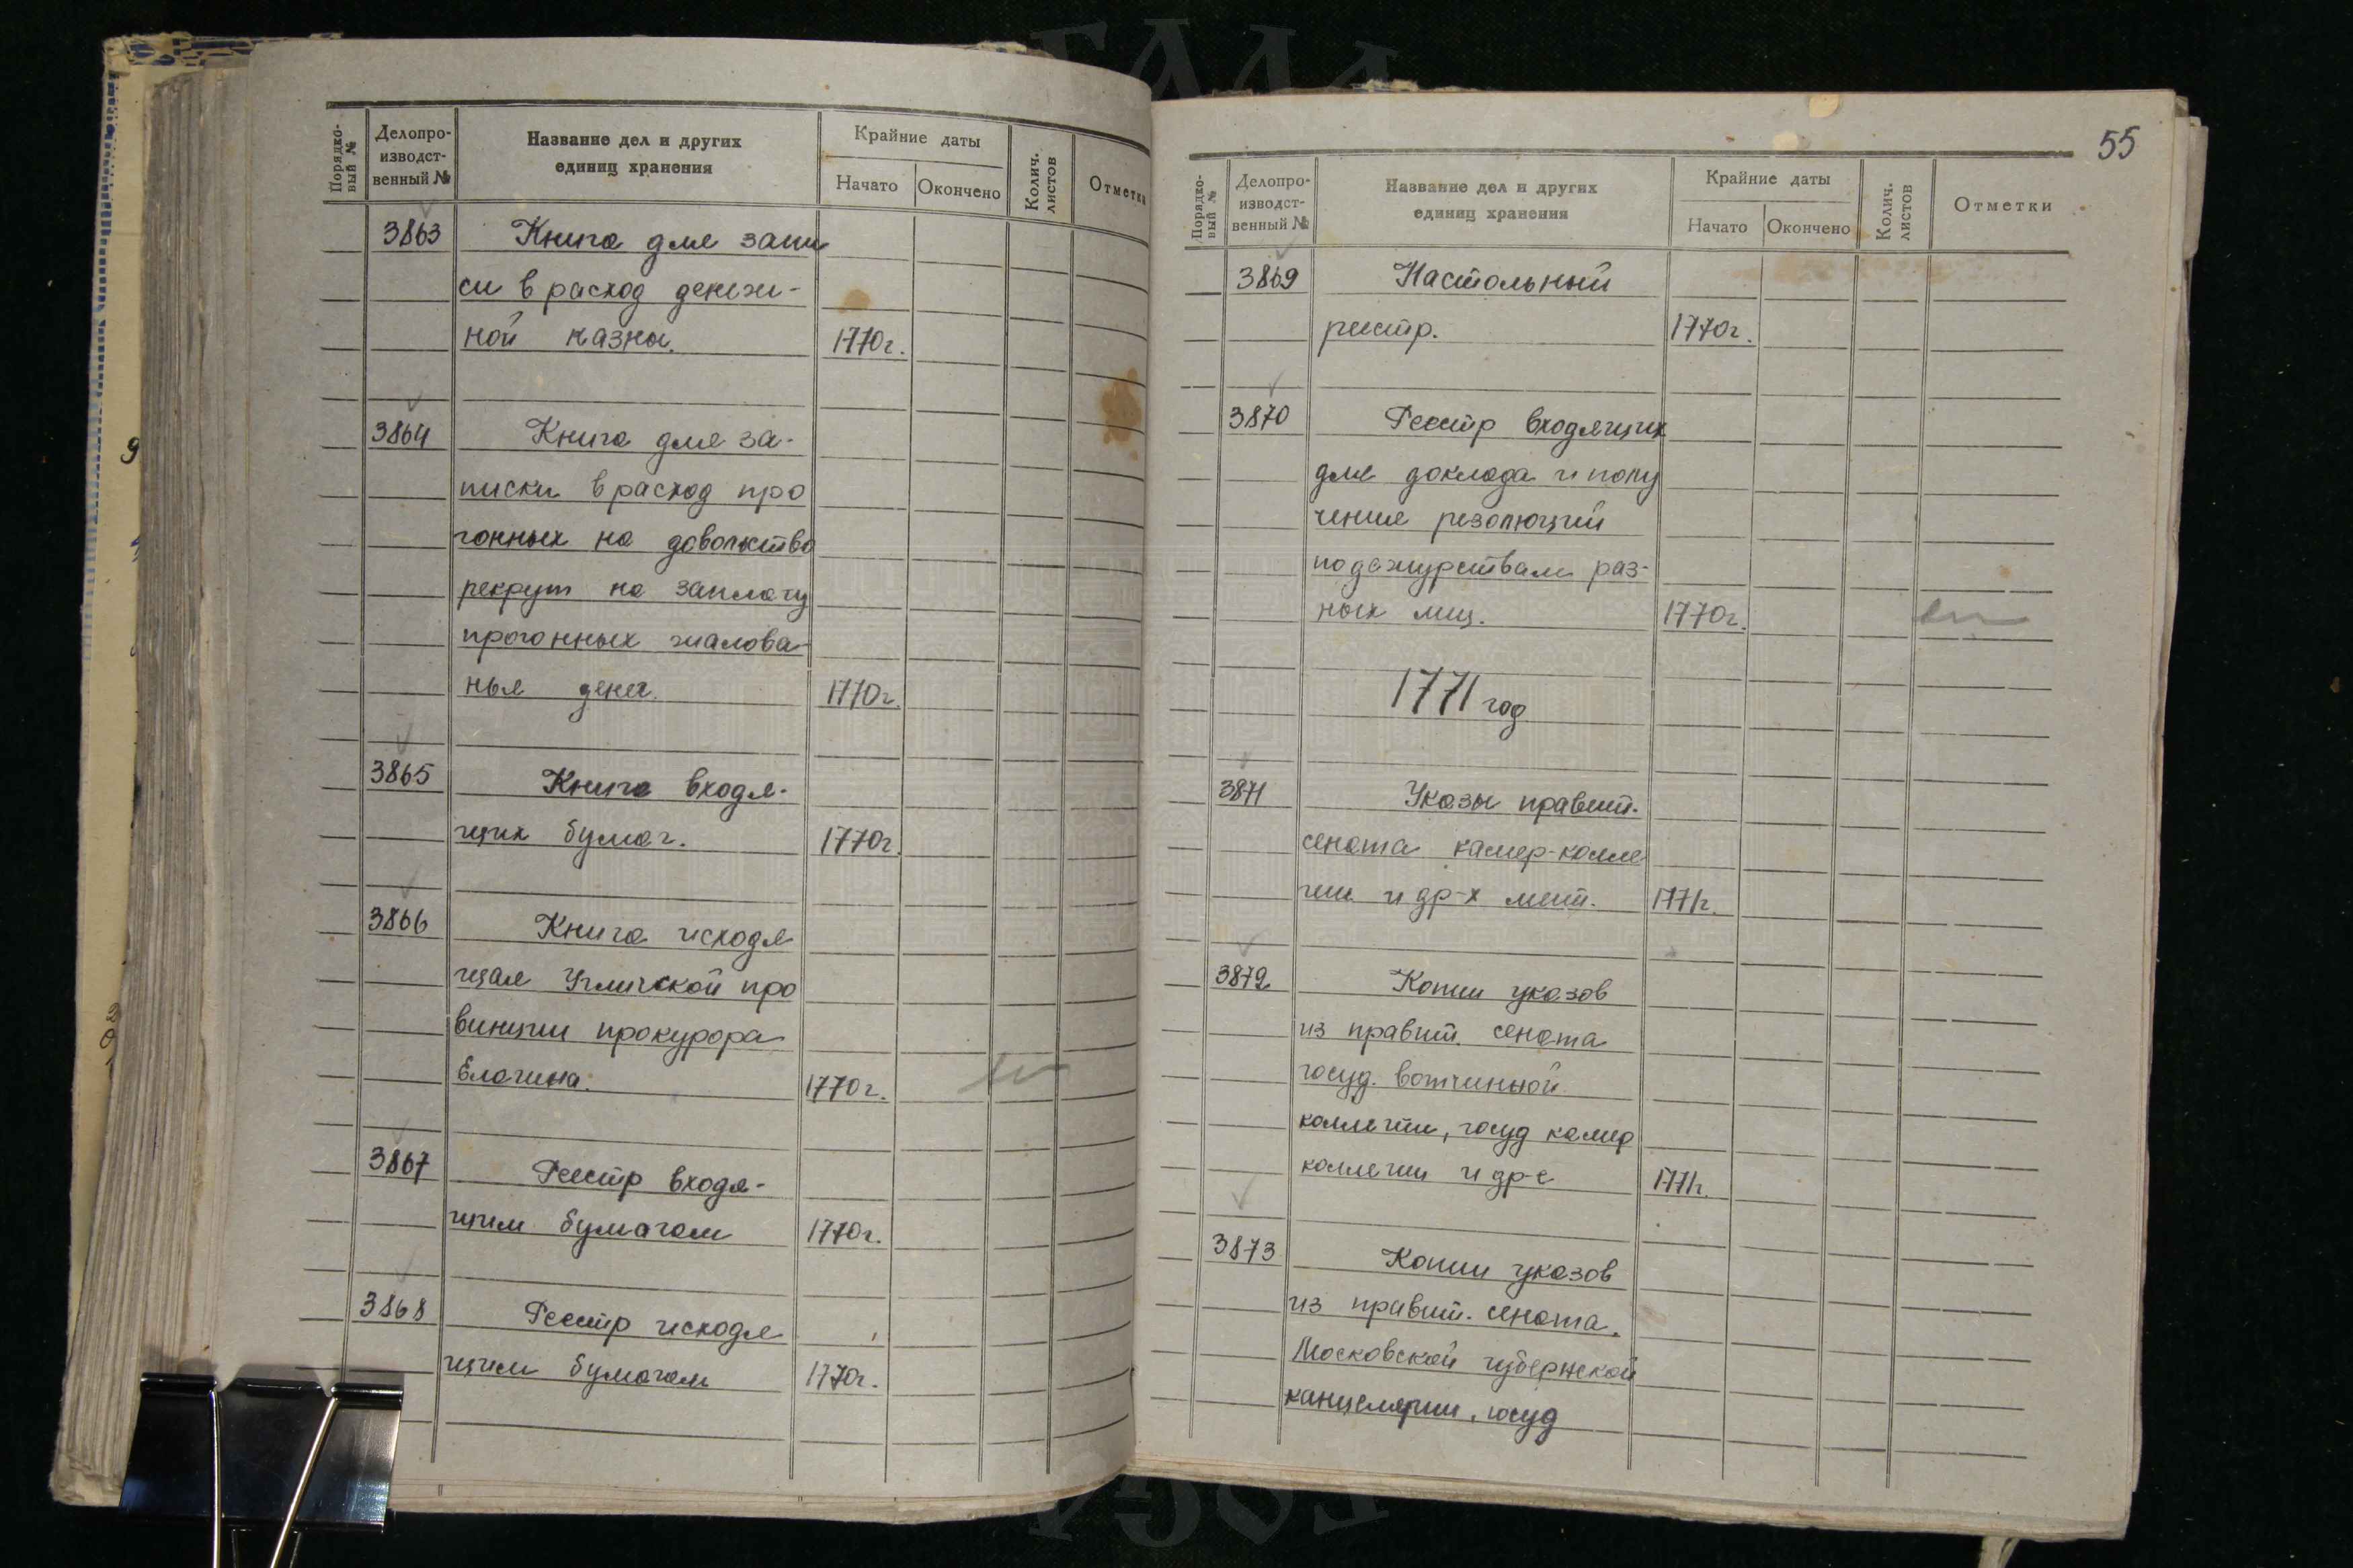 Порядко-
вый №
Делопро-
изводст-
венный №
Название дел и других
единиц хранения
Крайние даты
Начато
Окончено
Колич.
листов
Отметки
3863 Книга для запи
си в расход денеж-
ной казны. 1770г.
3864 Книга для за-
писки в расход про
гонных на довольство
рекрут на заплату
прогонных жалова-
нья денег. 1770г.
3865 Книга входя-
щих бумаг. 1770г.
3866 Книга исходя
щая Угличской про
винции прокурора
Елагина. 1770г.
3867 Реестр входя-
щим бумагам 1770г.
3868 Реестр исходя
щим бумагам 1770г.
55
Порядко-
вый №
Делопро-
изводст-
венный №
Название дел и других
единиц хранения
Крайние даты
Начато
Окончено
Колич.
листов
Отметки
3869 Настольный
реестр. 1770г.
3870 Реестр входящих
для доклада и полу
чения резолюций
по дежурствам раз-
ных лиц. 1770г.
1771 год
3871 Указы правит.
сената камер-колле
гии и др-х мест. 1771г.
3872 Копии указов
из правит. сената
госуд. вотчинной
коллегии, госуд камер
коллегии и др-е 1771г.
3873 Копии указов
из правит. сената,
Московской губернской
канцелярии, госуд